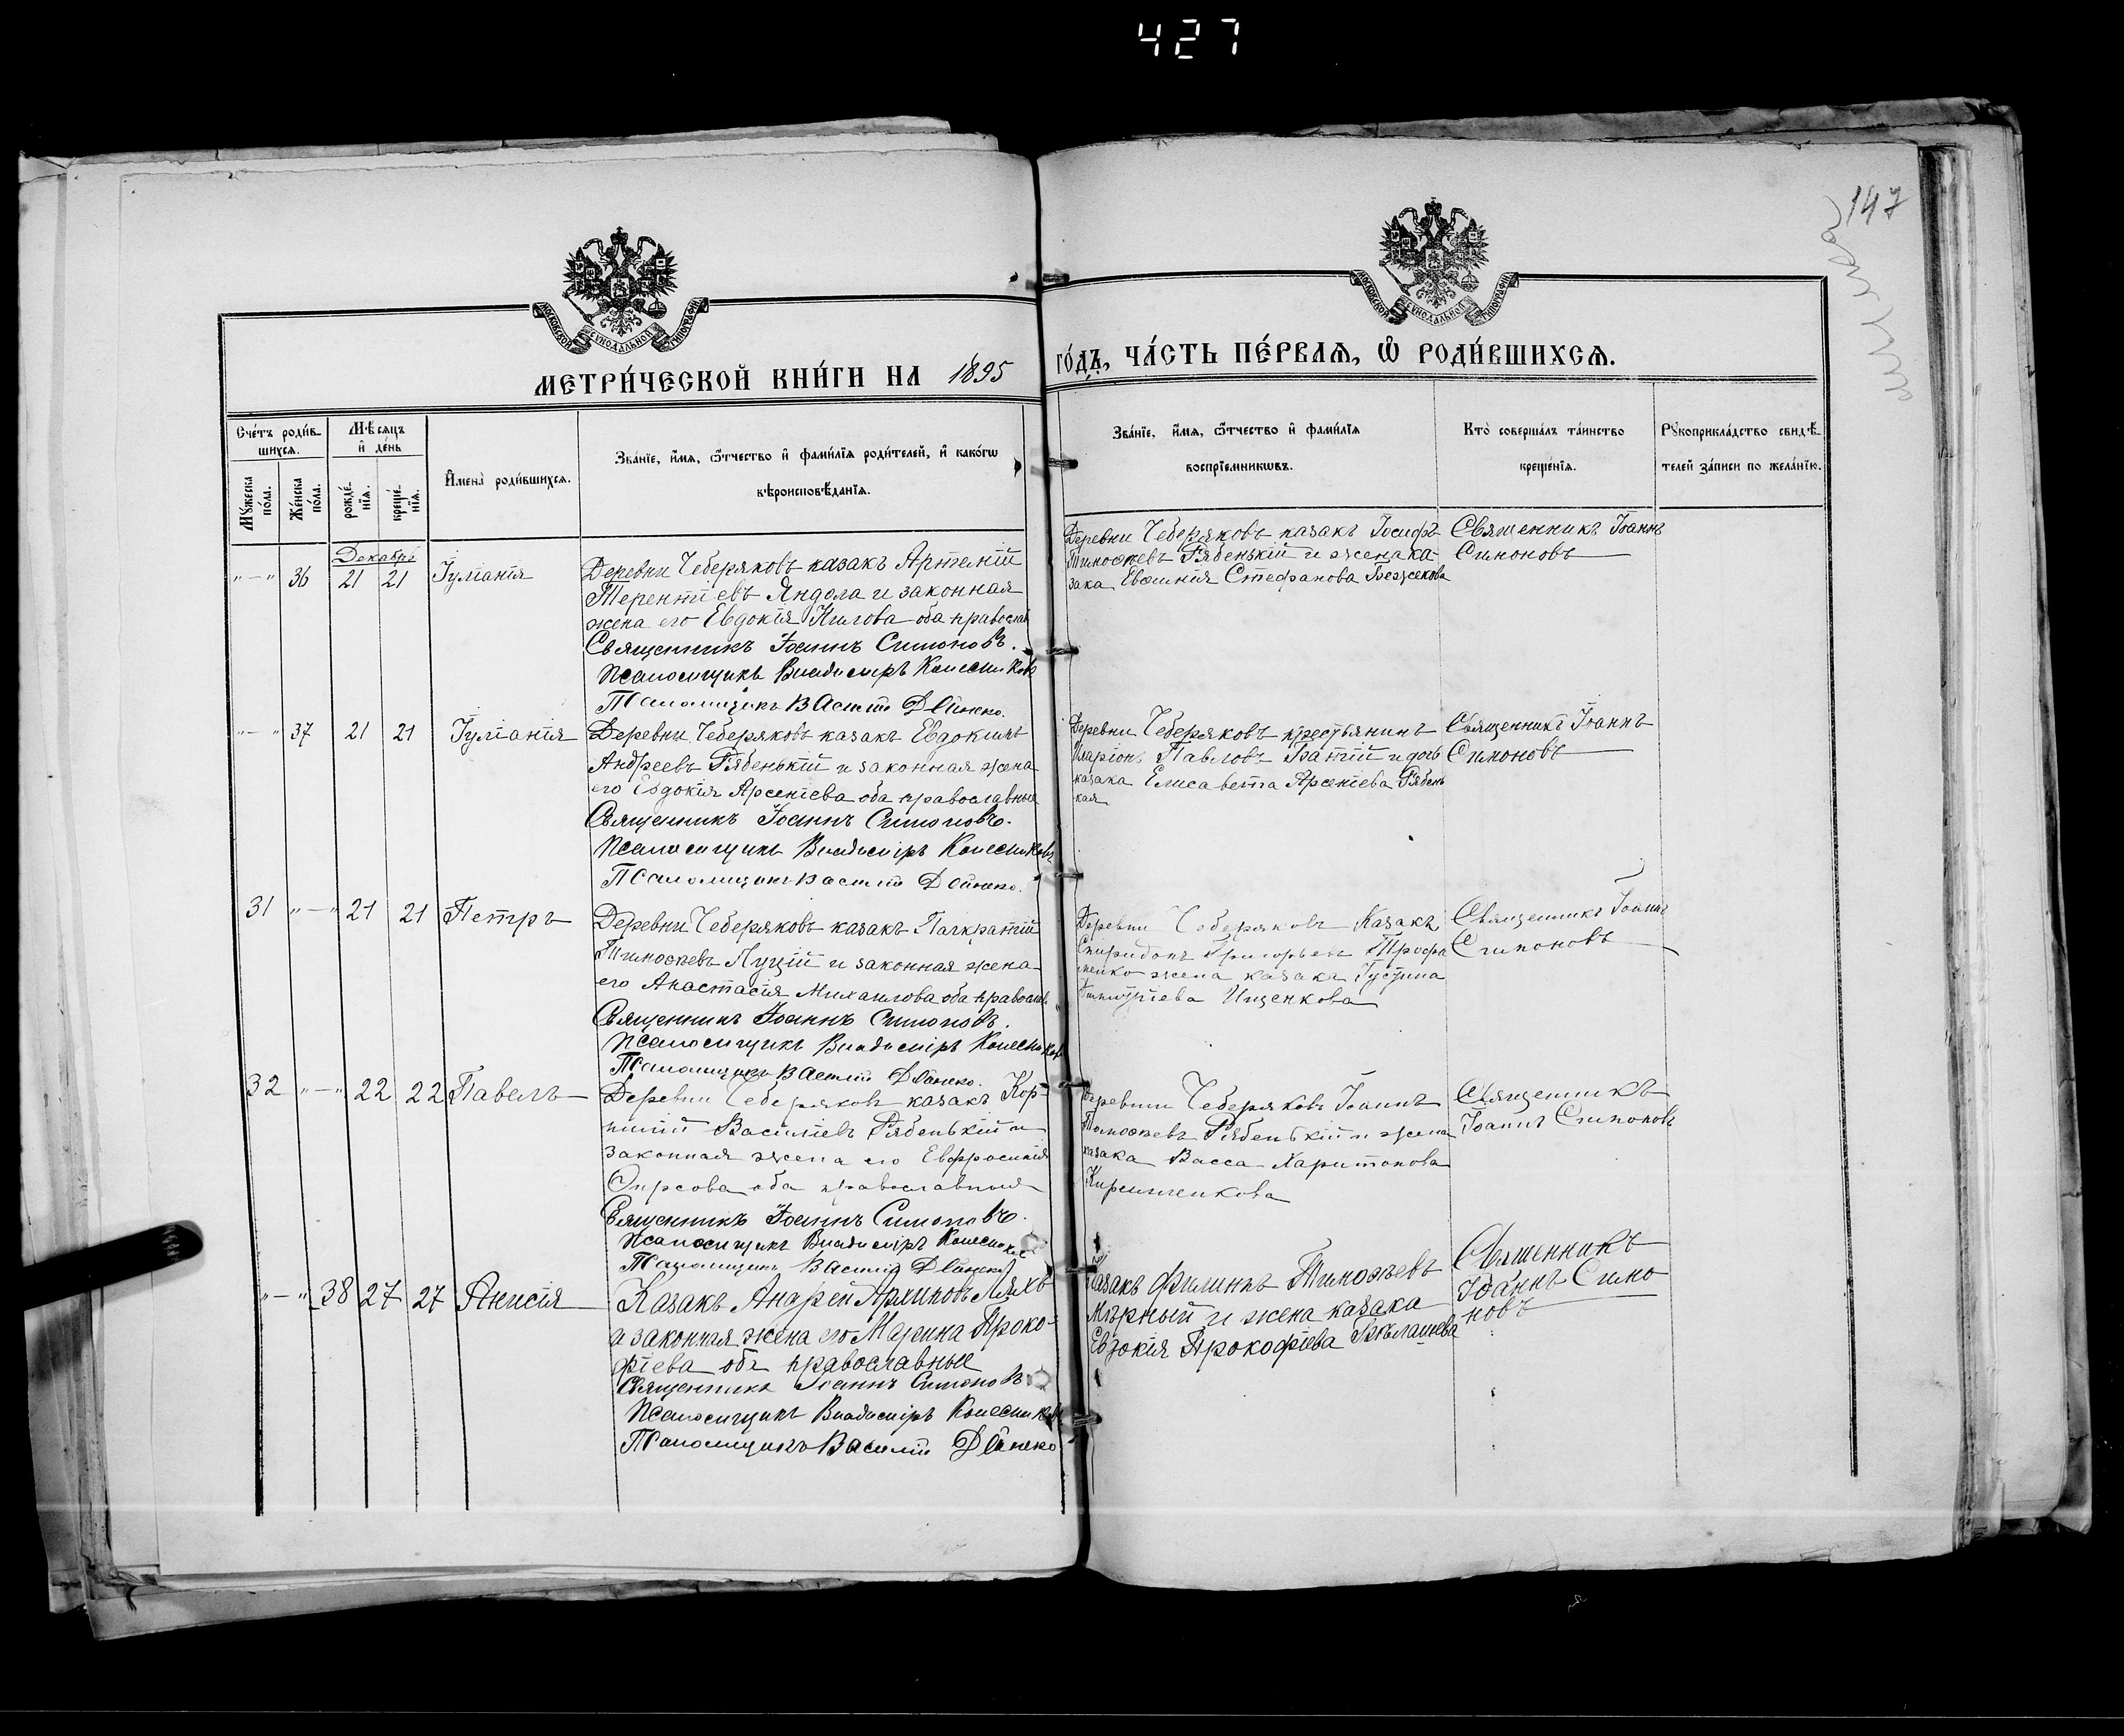 427
147
МОСКОВСКОЙ СѴНОДАЛЬНОЙ ТИПОГРАФІИ
МОСКОВСКОЙ СѴНОДАЛЬНОЙ ТИПОГРАФІИ
МЕТРИ́ЧЕСКОЙ КНИ́ГИ НА 1895 ГО́ДЪ, ЧА́СТЬ ПЕ́РВАЯ, Ѽ РОДИ́ВШИХСЯ.
Сче́тъ роди́в-
шихся.
Мѣ́сяцъ
и҆ де́нь
Мꙋ́жеска по́ла.
Же́нска по́ла.
рожде́-
нїя.
креще́-
нїя.
И҆мена̀ роди́вшихся.
Зва́нїе, и҆́мя, ѻ҆́тчество и҆ фами́лїя роди́телей, и҆ како́гѡ
вѣроисповѣ́данїя.
Зва́нїе, и҆́мя, ѻ҆́тчество и҆ фами́лїя
воспрїе́мникѡвъ.
Кто̀ соверша́лъ та́инство
креще́нїя.
Рꙋкоприкла́дство свидѣ́-
телей за́писи по жела́нїю.
Декабрь
"—" 36 21 21 Іуліанія
Деревни Чеберяковъ казакъ Артемій
Терентіевъ Яндола и законная
жена его Евдокія Килова оба православ
Священникъ Іоаннъ Симоновъ.
Псаломщикъ Владиміръ Колесниковъ
Псаломщикъ Василій Дейнеко.
Деревни Чеберяковъ казакъ Іосифъ
Тимоѳеевъ Рябенькій и жена ка-
зака Евѳимія Стефанова
Священникъ Іоаннъ
Симоновъ
"—" 37 21 21 Іуліанія
Деревни Чеберяковъ казакъ Евдокимъ
Андреевъ Рябенькій и законная жена
его Евдокія Арсеніева оба православные
Священникъ Іоаннъ Симоновъ.
Псаломщикъ Владиміръ Колесниковъ
Псаломщикъ Василій Дейнеко.
Деревни Чеберяковъ крестьянинъ
Иларіонъ Павловъ и дочь
казака Елисавета Арсеніева Рябень
кая
Священникъ Іоаннъ
Симоновъ
31 "—" 21 21 Петръ
Деревни Чеберяковъ казакъ Панкратій
Тимоѳеевъ Луцій и законная жена
его Анастасія Михаилова оба православ.
Священникъ Іоаннъ Симоновъ.
Псаломщикъ Владиміръ Колесниковъ
Псаломщикъ Василій Дейнеко.
Деревни Чеберяковъ Казакъ
Спиридонъ Григорьевъ Трофи
менко жена казака Іустина
Ищенкова
Священникъ Іоаннъ
Симоновъ
32 "—" 22 22 Павелъ
Деревни Чеберяковъ казакъ Кор-
нилій Василіевъ Рябенькій и
законная жена его Евфросинія
Ѳирсова оба православныя
Священникъ Іоаннъ Симоновъ.
Псаломщикъ Владиміръ Колесниковъ
Псаломщикъ Василій Дейнеко
Деревни Чеберяковъ Іоаннъ
Тимоѳеевъ Рябенькій и жена
казака Васса Харитонова
Священникъ
Іоаннъ Симоновъ
"—" 38 27 27 Анисія
Казакъ Андрей Архиповъ Ляхъ
и законная жена его Марина Проко-
фіева оба православные
Священникъ Іоаннъ Симоновъ
Псаломщикъ Владиміръ Колесниковъ
Псаломщикъ Василій Дейнеко
Казакъ Филиппъ Тимоѳеевъ
Мѣрный и жена казака
Евдокія Прокофіева
Священникъ
Іоаннъ Симо
новъ